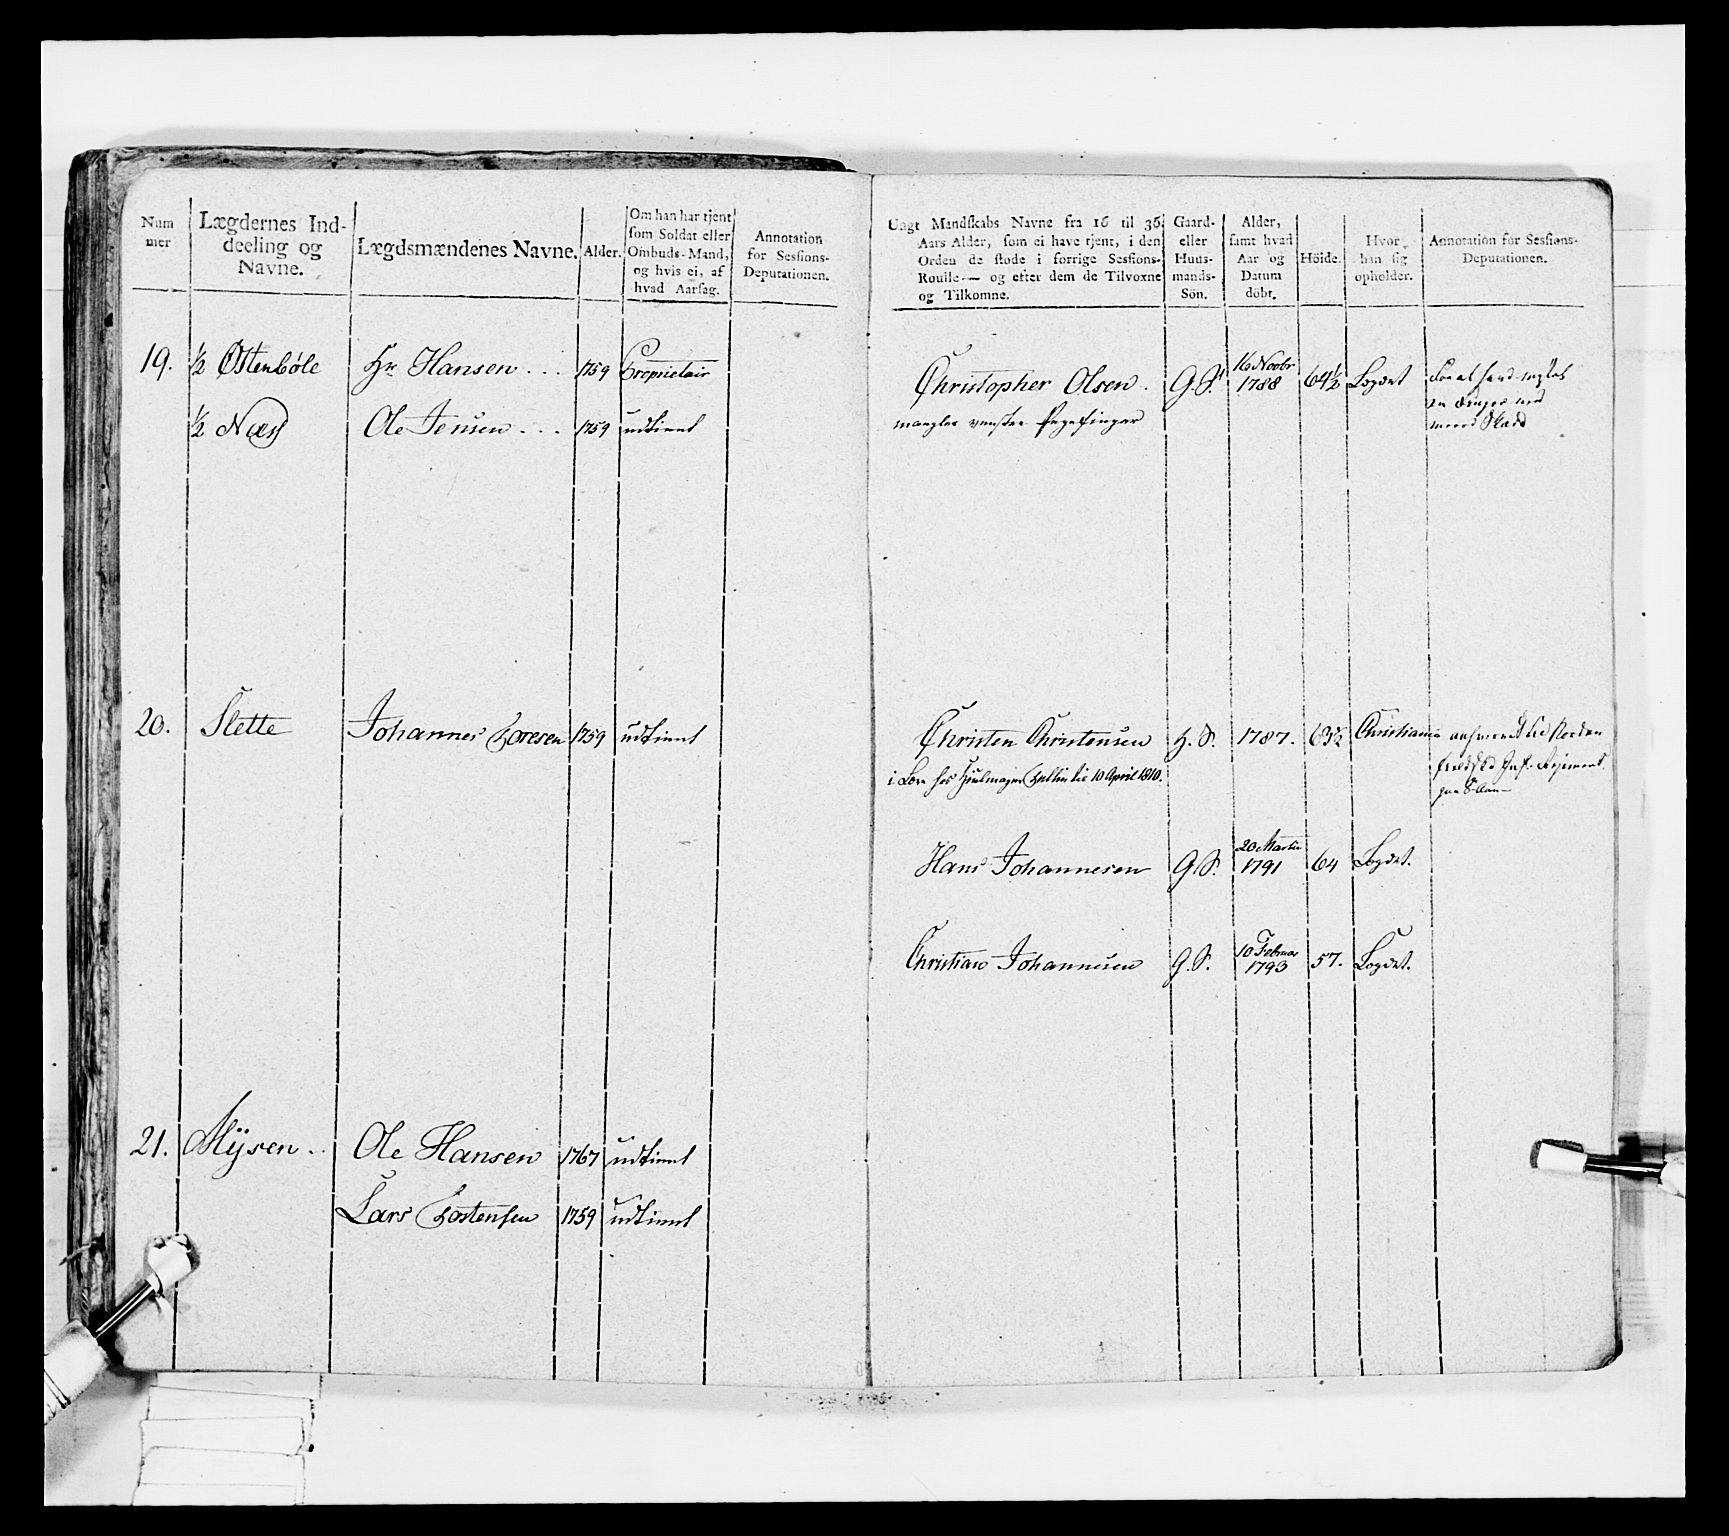 Num
mer
Lægdernes Ind-
deeling og
Navne.
Lægdsmændenes Navne.
Alder.
Om han har tjent
som Soldat eller
Ombuds-Mand,
og hvis ei, af
hvad Aarsag.
Annotation
for Sessions-
Deputationen.
19. ½ Østenbøle Hr Hansen . . . 1759 Proprietair
½ Næs Ole Jensen . . . 1759 udtient
20. Slette Johannes Toresen 1759 udtient
21. Mÿsen . . Ole Hansen 1767 udtient
Lars Tostensen 1759 udtient
Ungt Mandskabs Navne fra 16 til 36
Aars Alder, som ei have tjent, i den
Orden de stode i forrige Sessions-
Roulle — og efter dem de Tilvoxne
og Tilkomne.
Gaard-
eller
Huus-
mands-
Sön.
Alder,
samt hvad
Aar og
Datum
döbt.
Höide.
Hvor
han sig
opholder.
Annotation for Sessions-
Deputationen.
Christopher Olsen . G. S. 16 Novbr 1788 64½ Logdet
mangler venstre Pegefinger
Christen Christensen H. S. 1787. 63½ Christiania
i Lære hos Hiulmager til 10 April 1810.
Hans Johannesen G. S. 20 Martii 1791 64 Logdet.
Christian Johannesen G. S. 10 Februar 1793 57. Logdet.